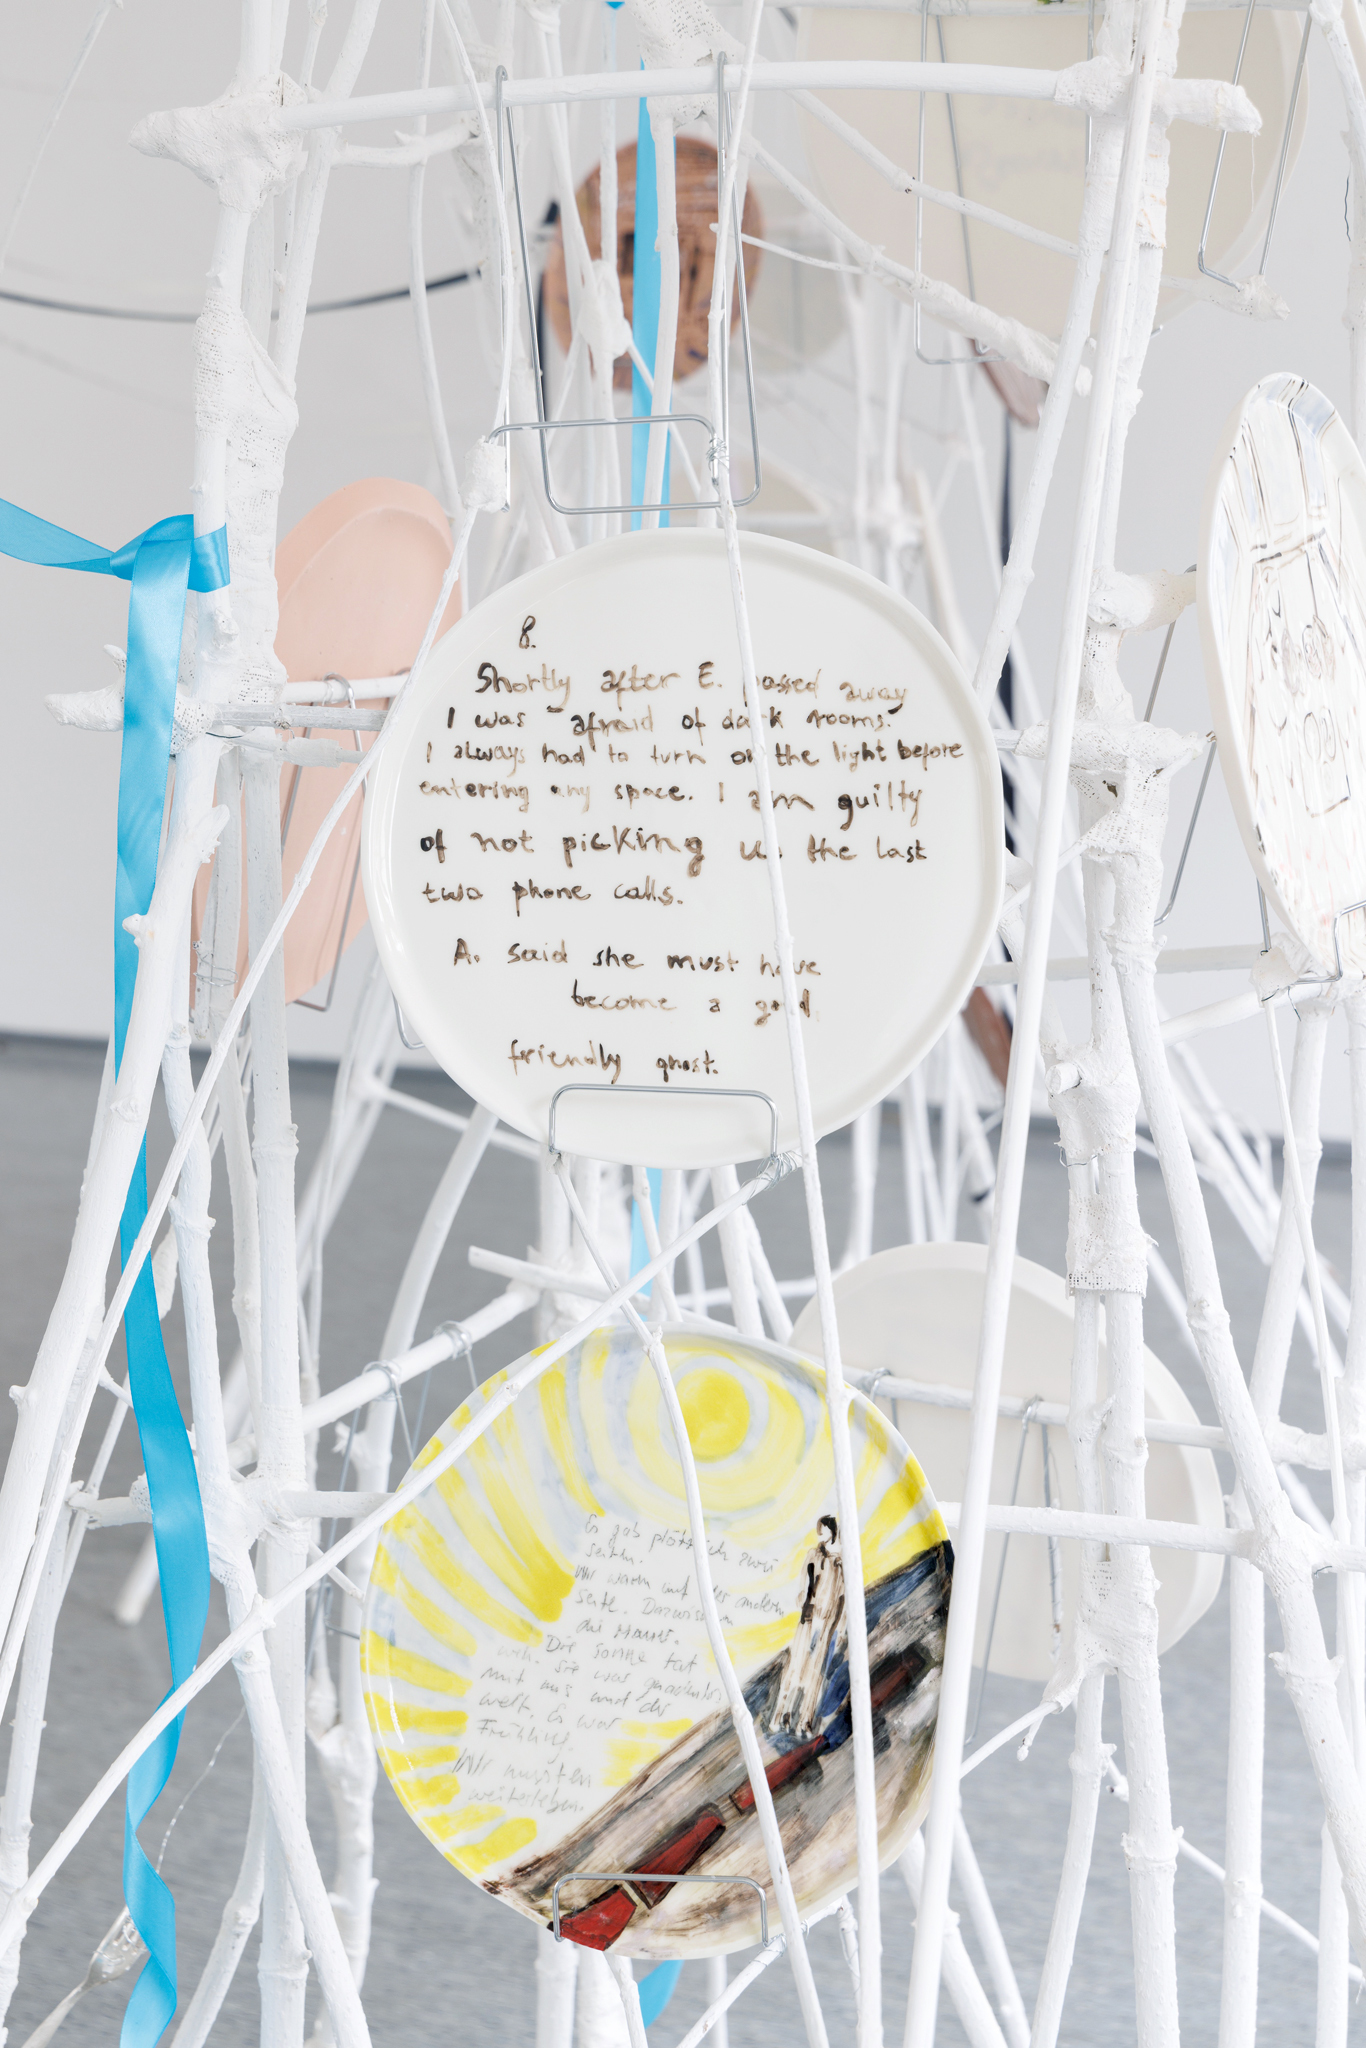 8.
Shortly after E. passed away
I was afraid of dark rooms.
I always had to turn on the light before
entering any space. I am guilty
of not picking up the last
two phone calls.
A. said she must have
become a good
friendly ghost.
Es gab plötzlich zwei
Seiten.
Wir waren auf der andern
Seite. Dazwischen
das
weh. Die Sonne tat
mit uns und der
Welt. Es war
Frühling.
Wir mussten
weiterleben.